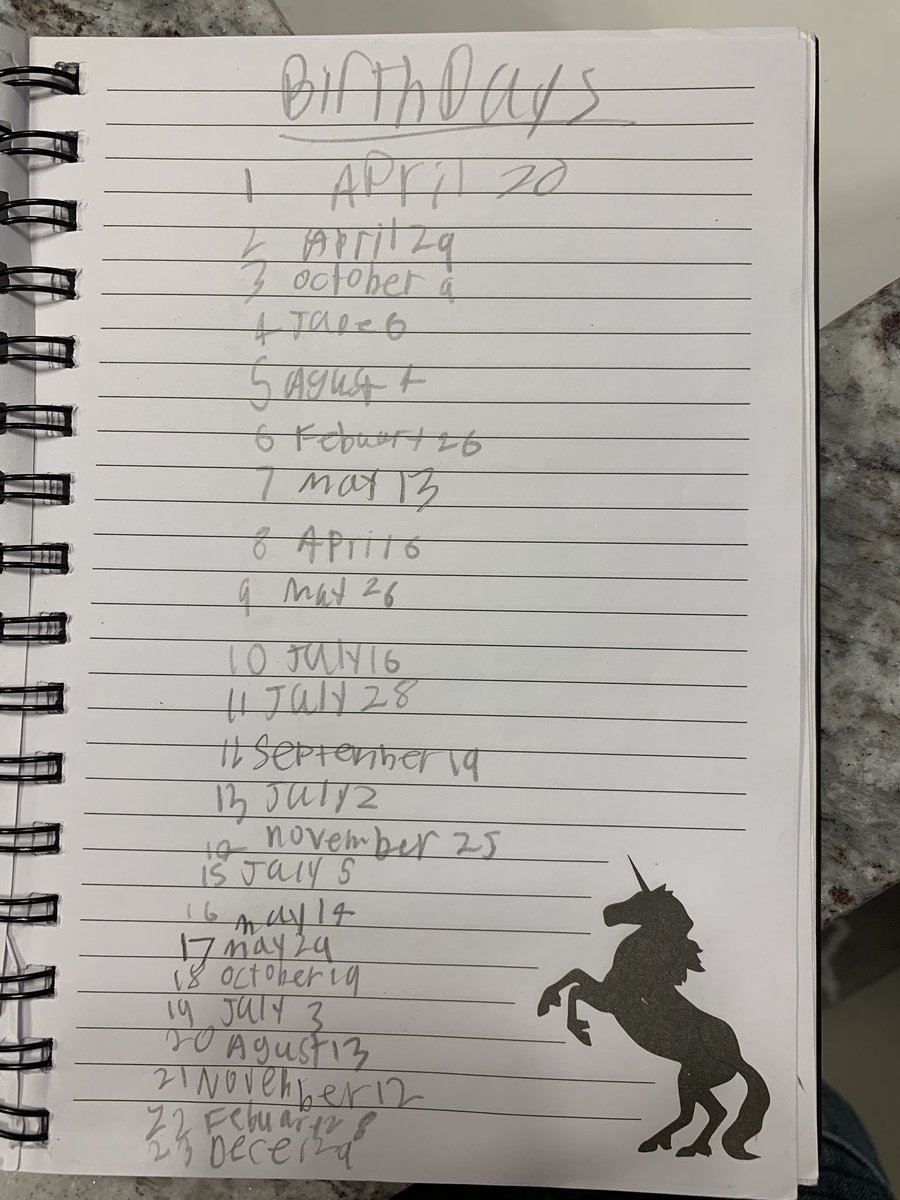 BirthDays
1 APril 20
2 April 29
3 october 9
4 June 6
5 Agust 4
6 Febuary 26
7 may 13
8 April 6
9 may 26
10 July 16
11 July 28
11 September 19
13 July 2
november 25
15 July 5
16 may 14
17 may 29
18 october 19
19 July 3
20 Agust 13
21 November 12
22 Febuary 28
23 Decer 29